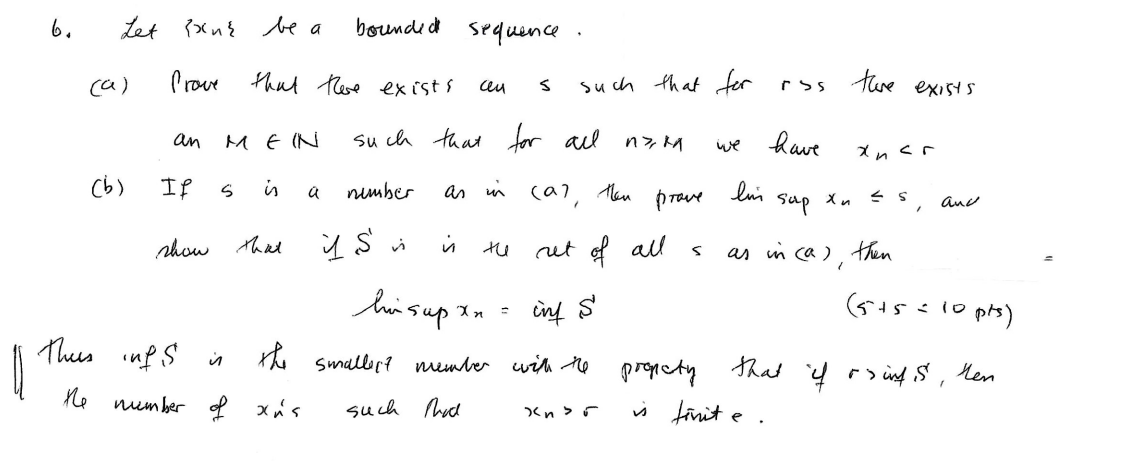 6. Let {xn} be a bounded sequence.
(a) Prove that there exists an s such that for r>s there exists
an M ∈ ℕ such that for all n≥M we have xn<r
(b) If s is a number as in (a), then prove lim sup xn ≤ s, and
show that if S is is the set of all s as in (a), then =
lim sup xn = inf S (5+5=10 pts)
Thus inf S is the smallest number with the property that if r>inf S, then
the number of xn's such that xn>r is finite.